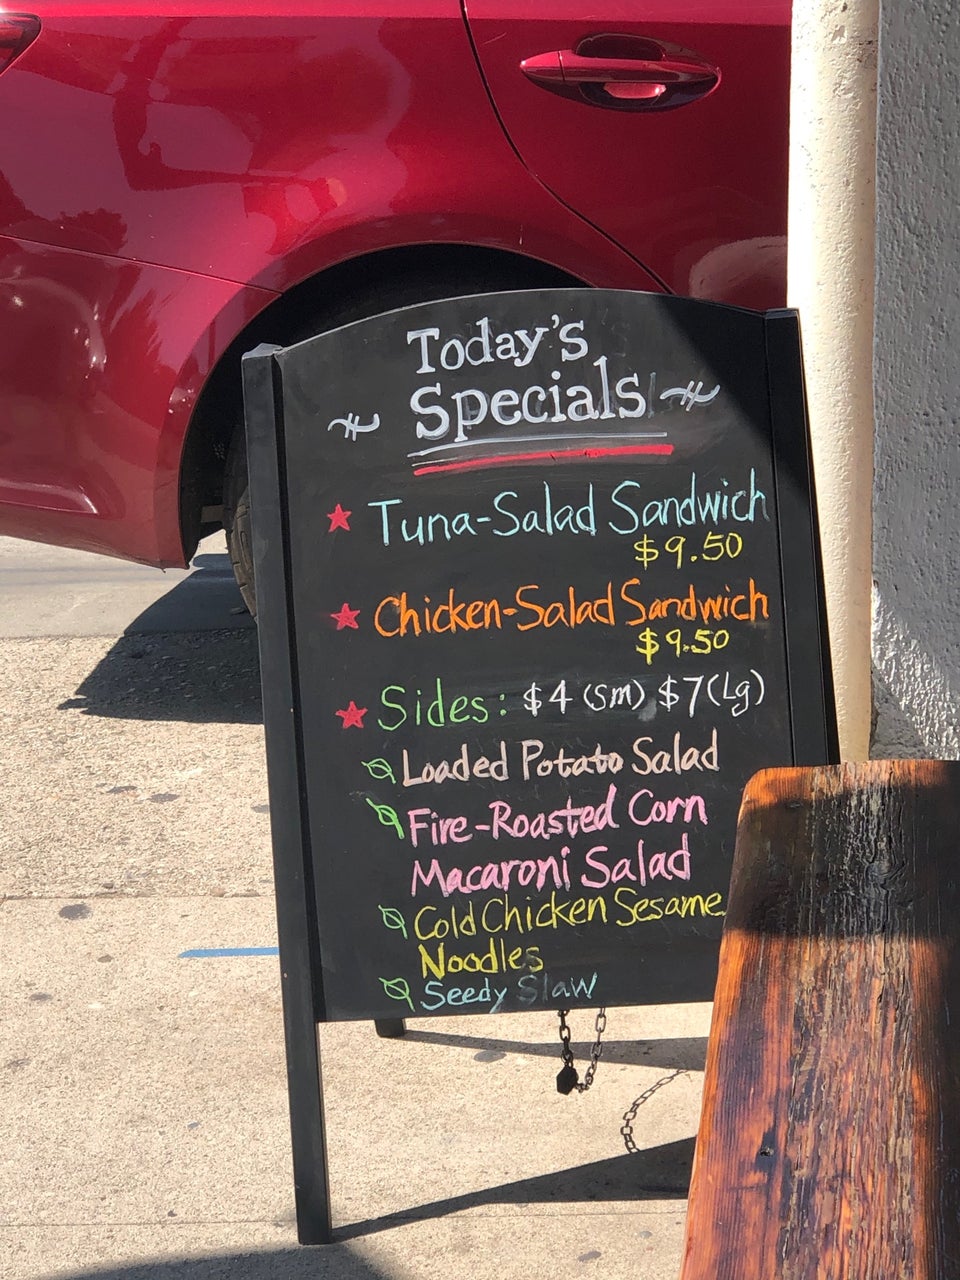 Today's
Specials
Tuna-Salad Sandwich
$9.50
Chicken-Salad Sandwich
$9.50
Sides: $4 (Sm) $7 (Lg)
Loaded Potato Salad
Fire-Roasted Corn
Macaroni Salad
Cold Chicken Sesame
Noodles
Seedy Slaw